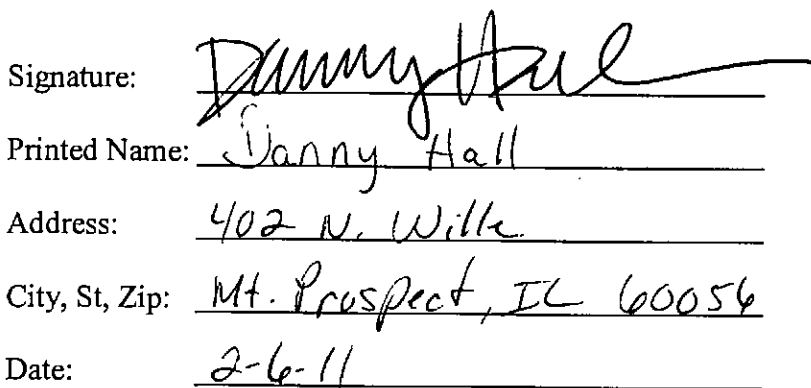 Signature: Danny Hall
Printed Name: Danny Hall
Address: 402 N. Wille
City, St, Zip: Mt. Prospect, IL 60056
Date: 2-6-11